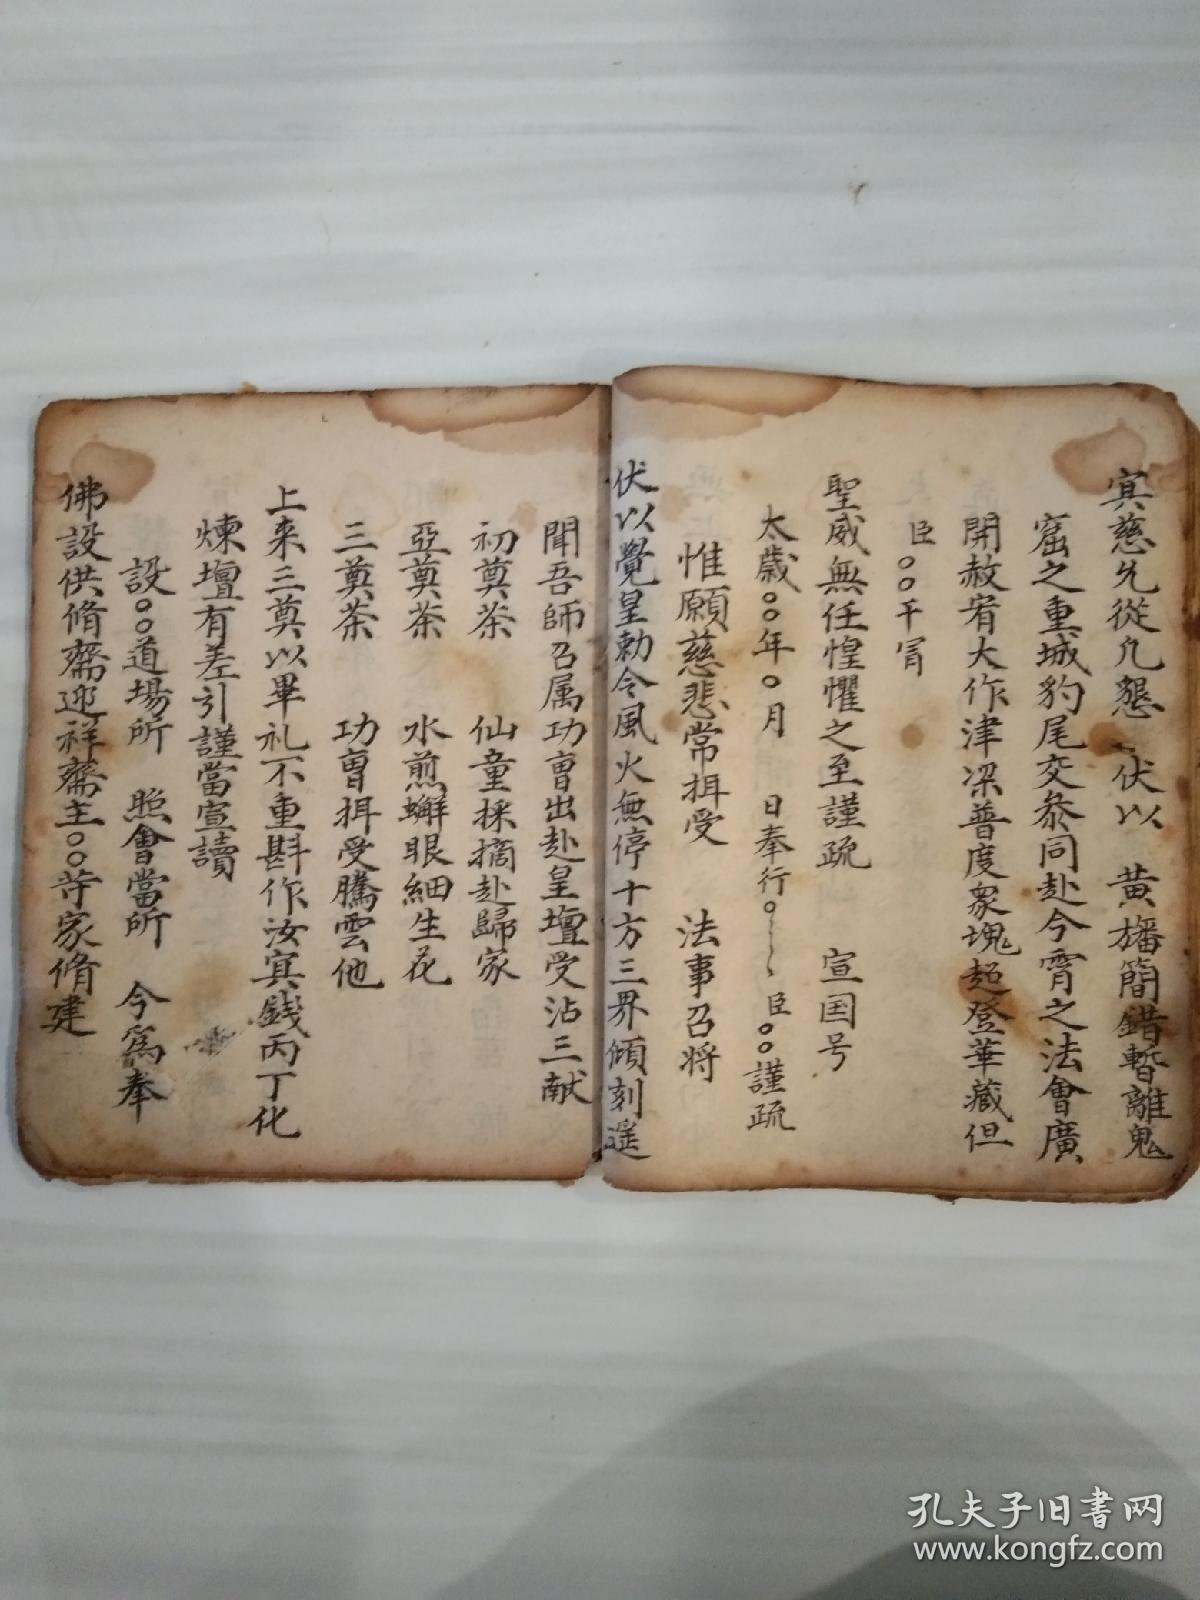 冥慈允從凡懇　伏以　黄旛簡錯暫離鬼
窟之重城豹尾交叅同赴今霄之法會廣
開赦宥大作津梁普度衆塊超登華藏但
臣○○干冐
聖威無任惶懼之至謹疏　宣国号
太歲○○年○月　日奉行○〻〻臣○○謹疏
惟願慈悲常拜受　法事召将
伏以覺皇勅令風火無停十方三界傾刻遥
聞吾師召属功曹出赴皇壇受沾三献
初奠茶　仙童採摘赴歸家
亞奠茶　水煎蠏眼細生花
三奠茶　功曹拜受騰雲他
上来三奠以畢礼不重斟作汝冥錢丙丁化
煉壇有差引謹當宣讀
設○○道場所　照會當所　今爲奉
佛設供脩齋迎祥齋主○○等家脩建
孔夫子旧書网
www.kongfz.com